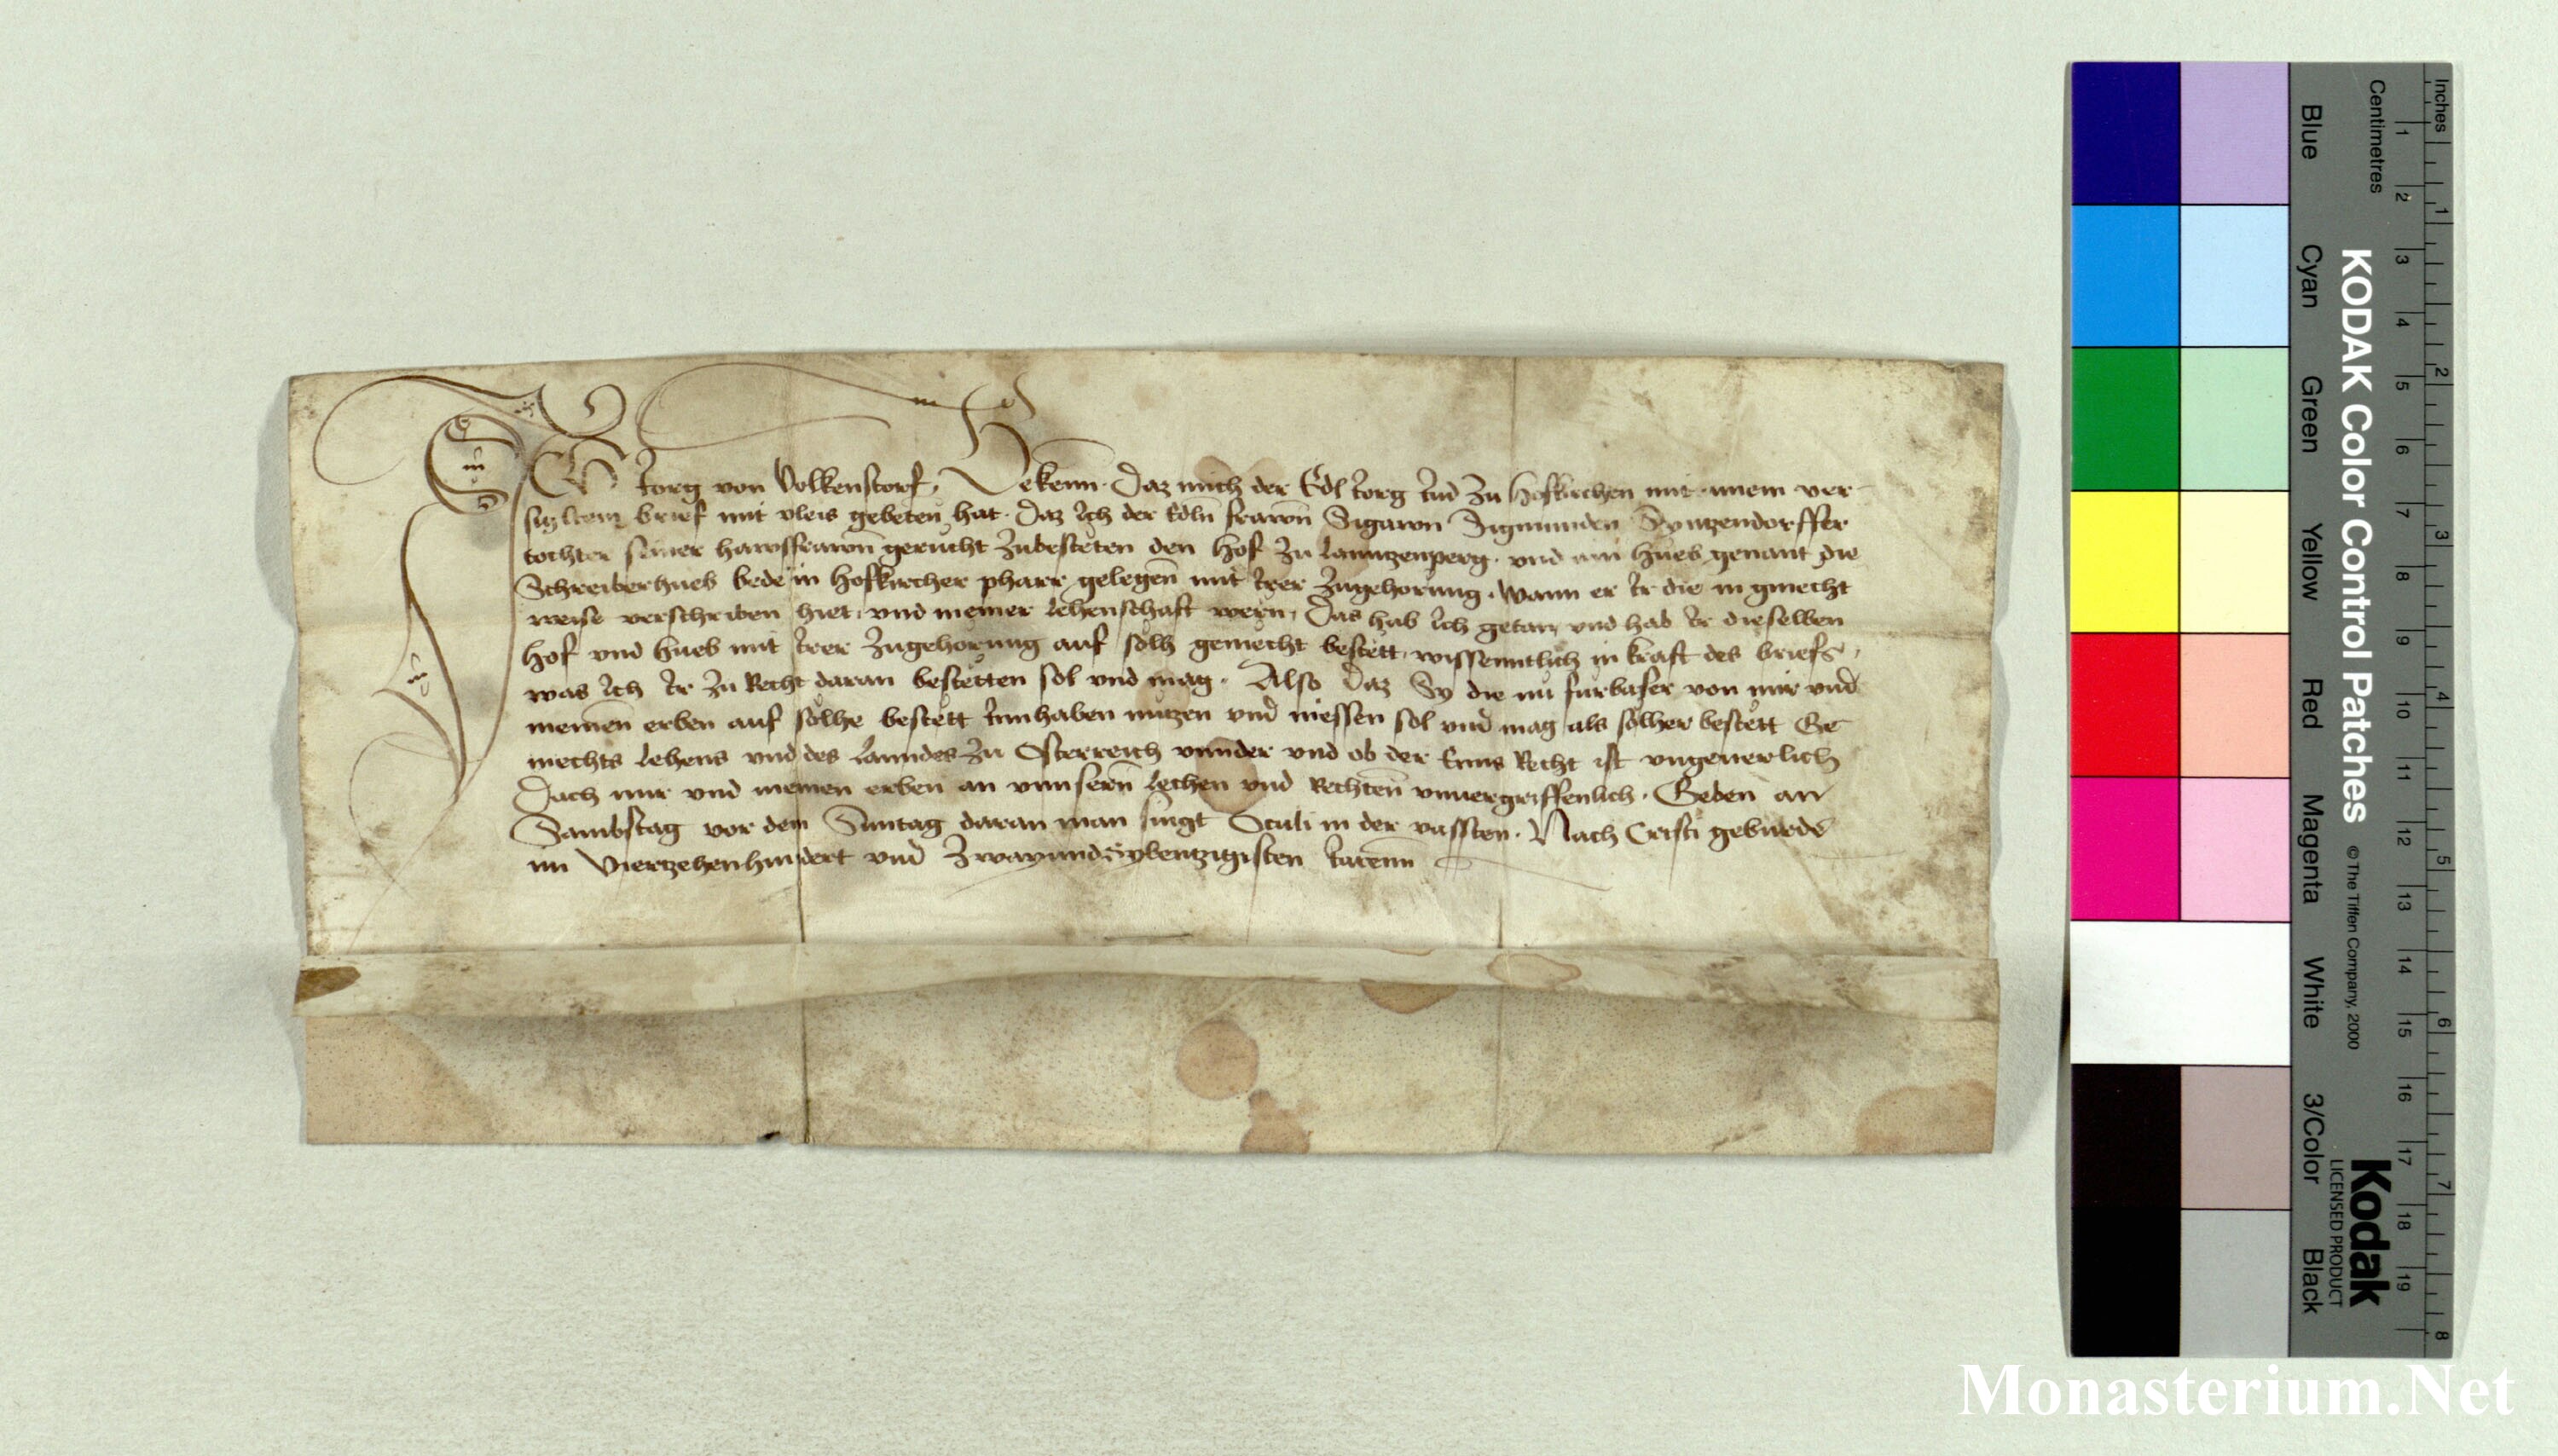 Ich Jorg von Volkenstorf, Bekenn. Daz mich der Edl Jorg zu Hofkirchen mit seinem ver-
brief mit vleis gebeten hat. Daz Ich der Edln frawn Sigawn Sigmunden Syntzendorffer
tochter seiner hawsfrawn gerucht zubesteten den Hof zu Launtzenperg. vnd ain Hueb genant die
Schreiberhueb bede in Hofkircher pharr gelegen mit Irer zugehorung. wann er Ir die in gmecht
weise verschriben hiet. vnd meiner Lehenschaft wern, Das hab Ich getan vnd hab Ir dieselben
Hof vnd Hueb mit Irer zugehorung auf solh gemecht bestett. wissenntlich in kraft des briefs,
was Ich Ir zu Recht daran bestetten sol vnd mag. Also Daz Sy die nu furbaser von mir vnd
meinen erben auf solhe bestett Innhaben nutzen vnd niessen sol vnd mag als solher bestett Ge-
mechts Lehens vnd des Lanndes zu Osterreich vnnder vnd ob der Enns Recht ist vngeuerlich
Doch mir vnd meinen erben an vnnsern Lechen vnd Rechten vnuergriffenlich. Geben an
Sambstag vor dem Sunntag daran man singt Oculi in der vassten. Nach Cristi geburde
im Viertzehenhundert vnd Zwayundsybentzigisten Jarenn
Inches
Centimetres
1 2 3 4 5 6 7 8
1 2 3 4 5 6 7 8 9 10 11 12 13 14 15 16 17 18 19
KODAK Color Control Patches © The Tiffen Company, 2000
Kodak
LICENSED PRODUCT
Blue Cyan Green Yellow Red Magenta White 3/Color Black
Monasterium.Net